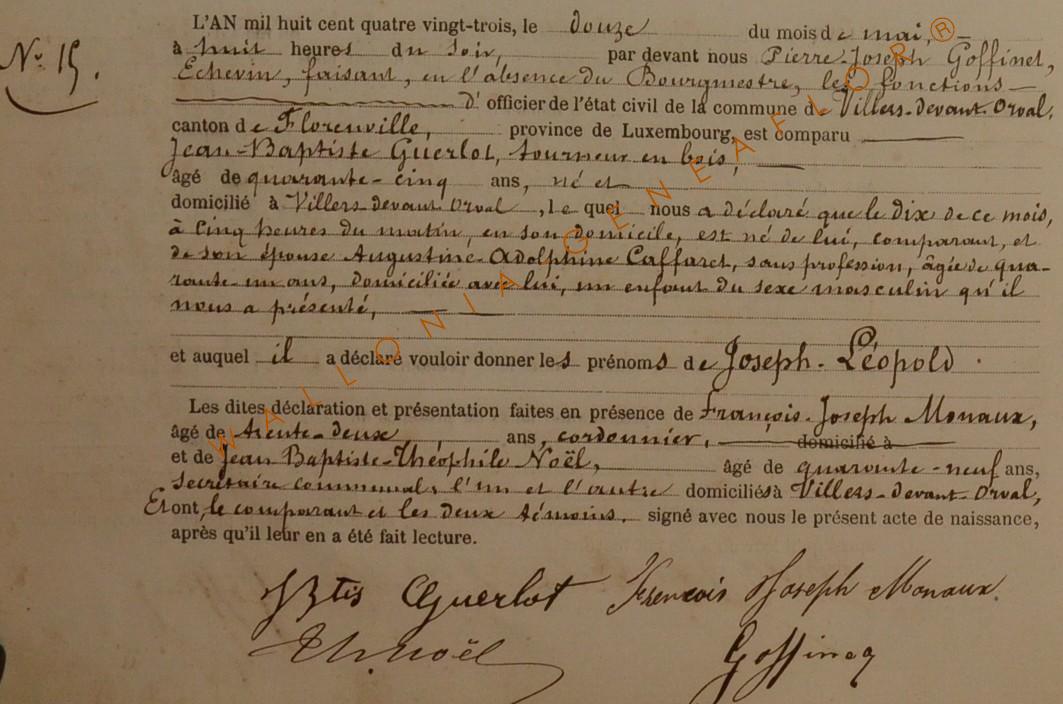 L'AN mil huit cent quatre vingt-trois, le douze du mois de mai,
N° 15.
à huit heures du soir, par devant nous Pierre-Joseph Goffinet,
Echevin, faisant, en l'absence du Bourgmestre, les fonctions
d'officier de l'état civil de la commune de Villers-devant-Orval,
canton de Florenville, province de Luxembourg, est comparu
Jean-Baptiste Guerlot, tourneur en bois,
âgé de quarante-cinq ans, né et
domicilié à Villers devant Orval, lequel nous a déclaré que le dix de ce mois,
à cinq heures du matin, en son domicile, est né de lui, comparant, et
de son épouse Augustine-Adolphine Caffaret, sans profession, âgée de qua-
rante-un ans, domiciliée avec lui, un enfant du sexe masculin qu'il
nous a présenté,
et auquel il a déclaré vouloir donner les prénoms de Joseph-Léopold.
Les dites déclaration et présentation faites en présence de François-Joseph Monaux,
âgé de trente-deux ans, cordonnier, domicilié à
et de Jean Baptiste-Théophile Noël, âgé de quarante-neuf ans,
secrétaire communal, l'un et l'autre domiciliés à Villers-devant-Orval,
Et ont, le comparant et les deux témoins, signé avec nous le présent acte de naissance,
après qu'il leur en a été fait lecture.
JBtis Guerlot François Joseph Monaux
Th. Noël Goffinet
WALLONIA GENEA FLOR ®